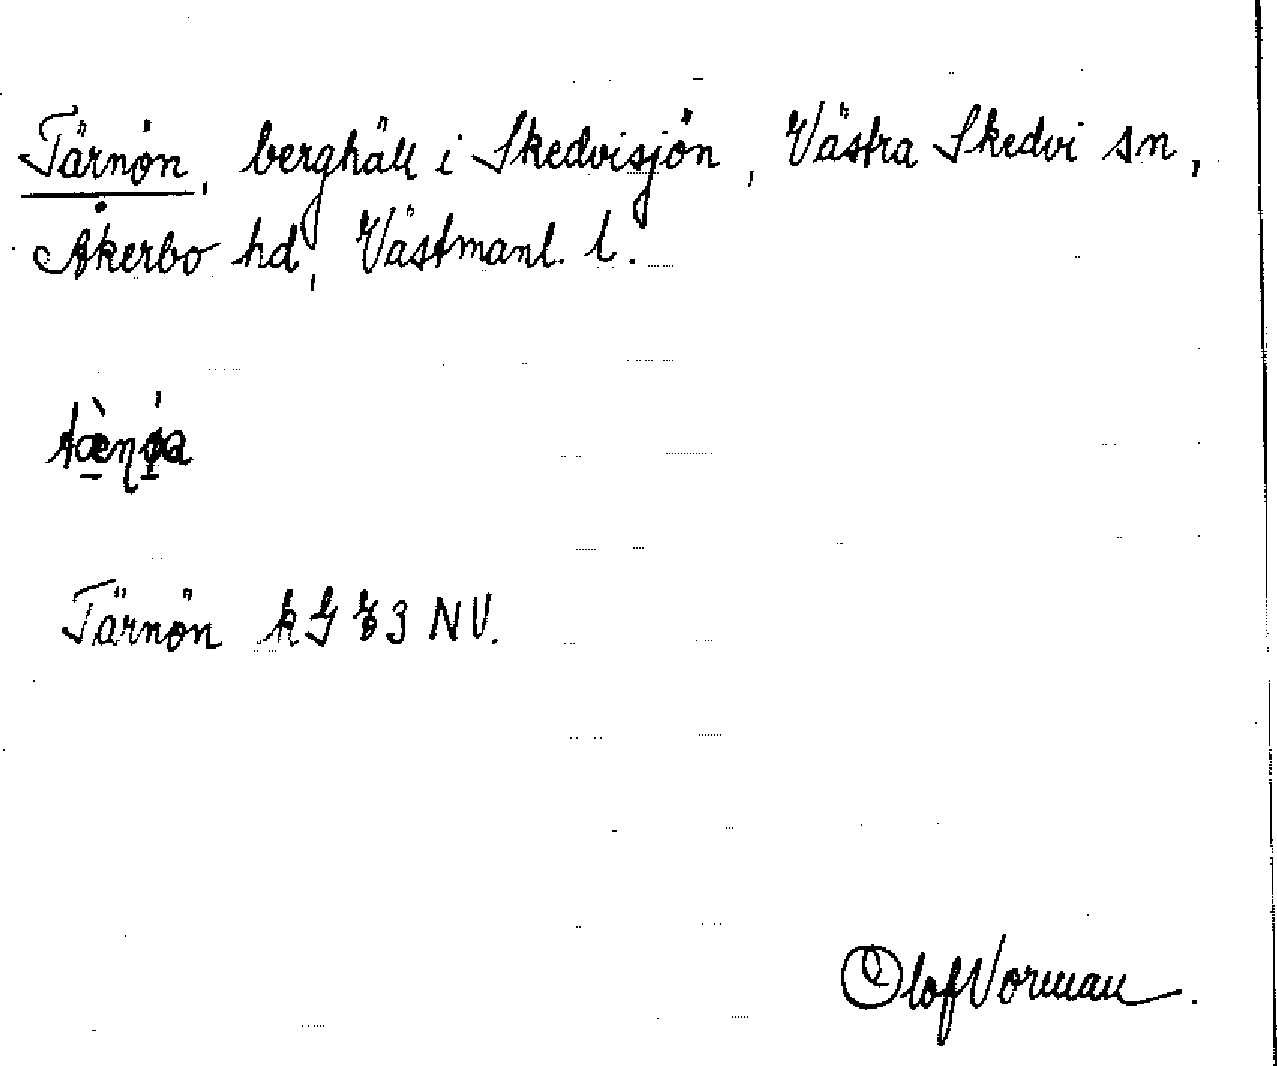 Tärnön, berghäll i Skedvisjön, Västra Skedvi sn,
Åkerbo hd, Västmanl. l.
Tärnön kG 73 NV.
Olof Vorman.